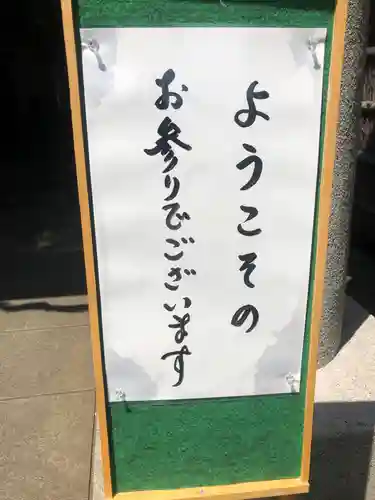 ようこその
お参りでございます